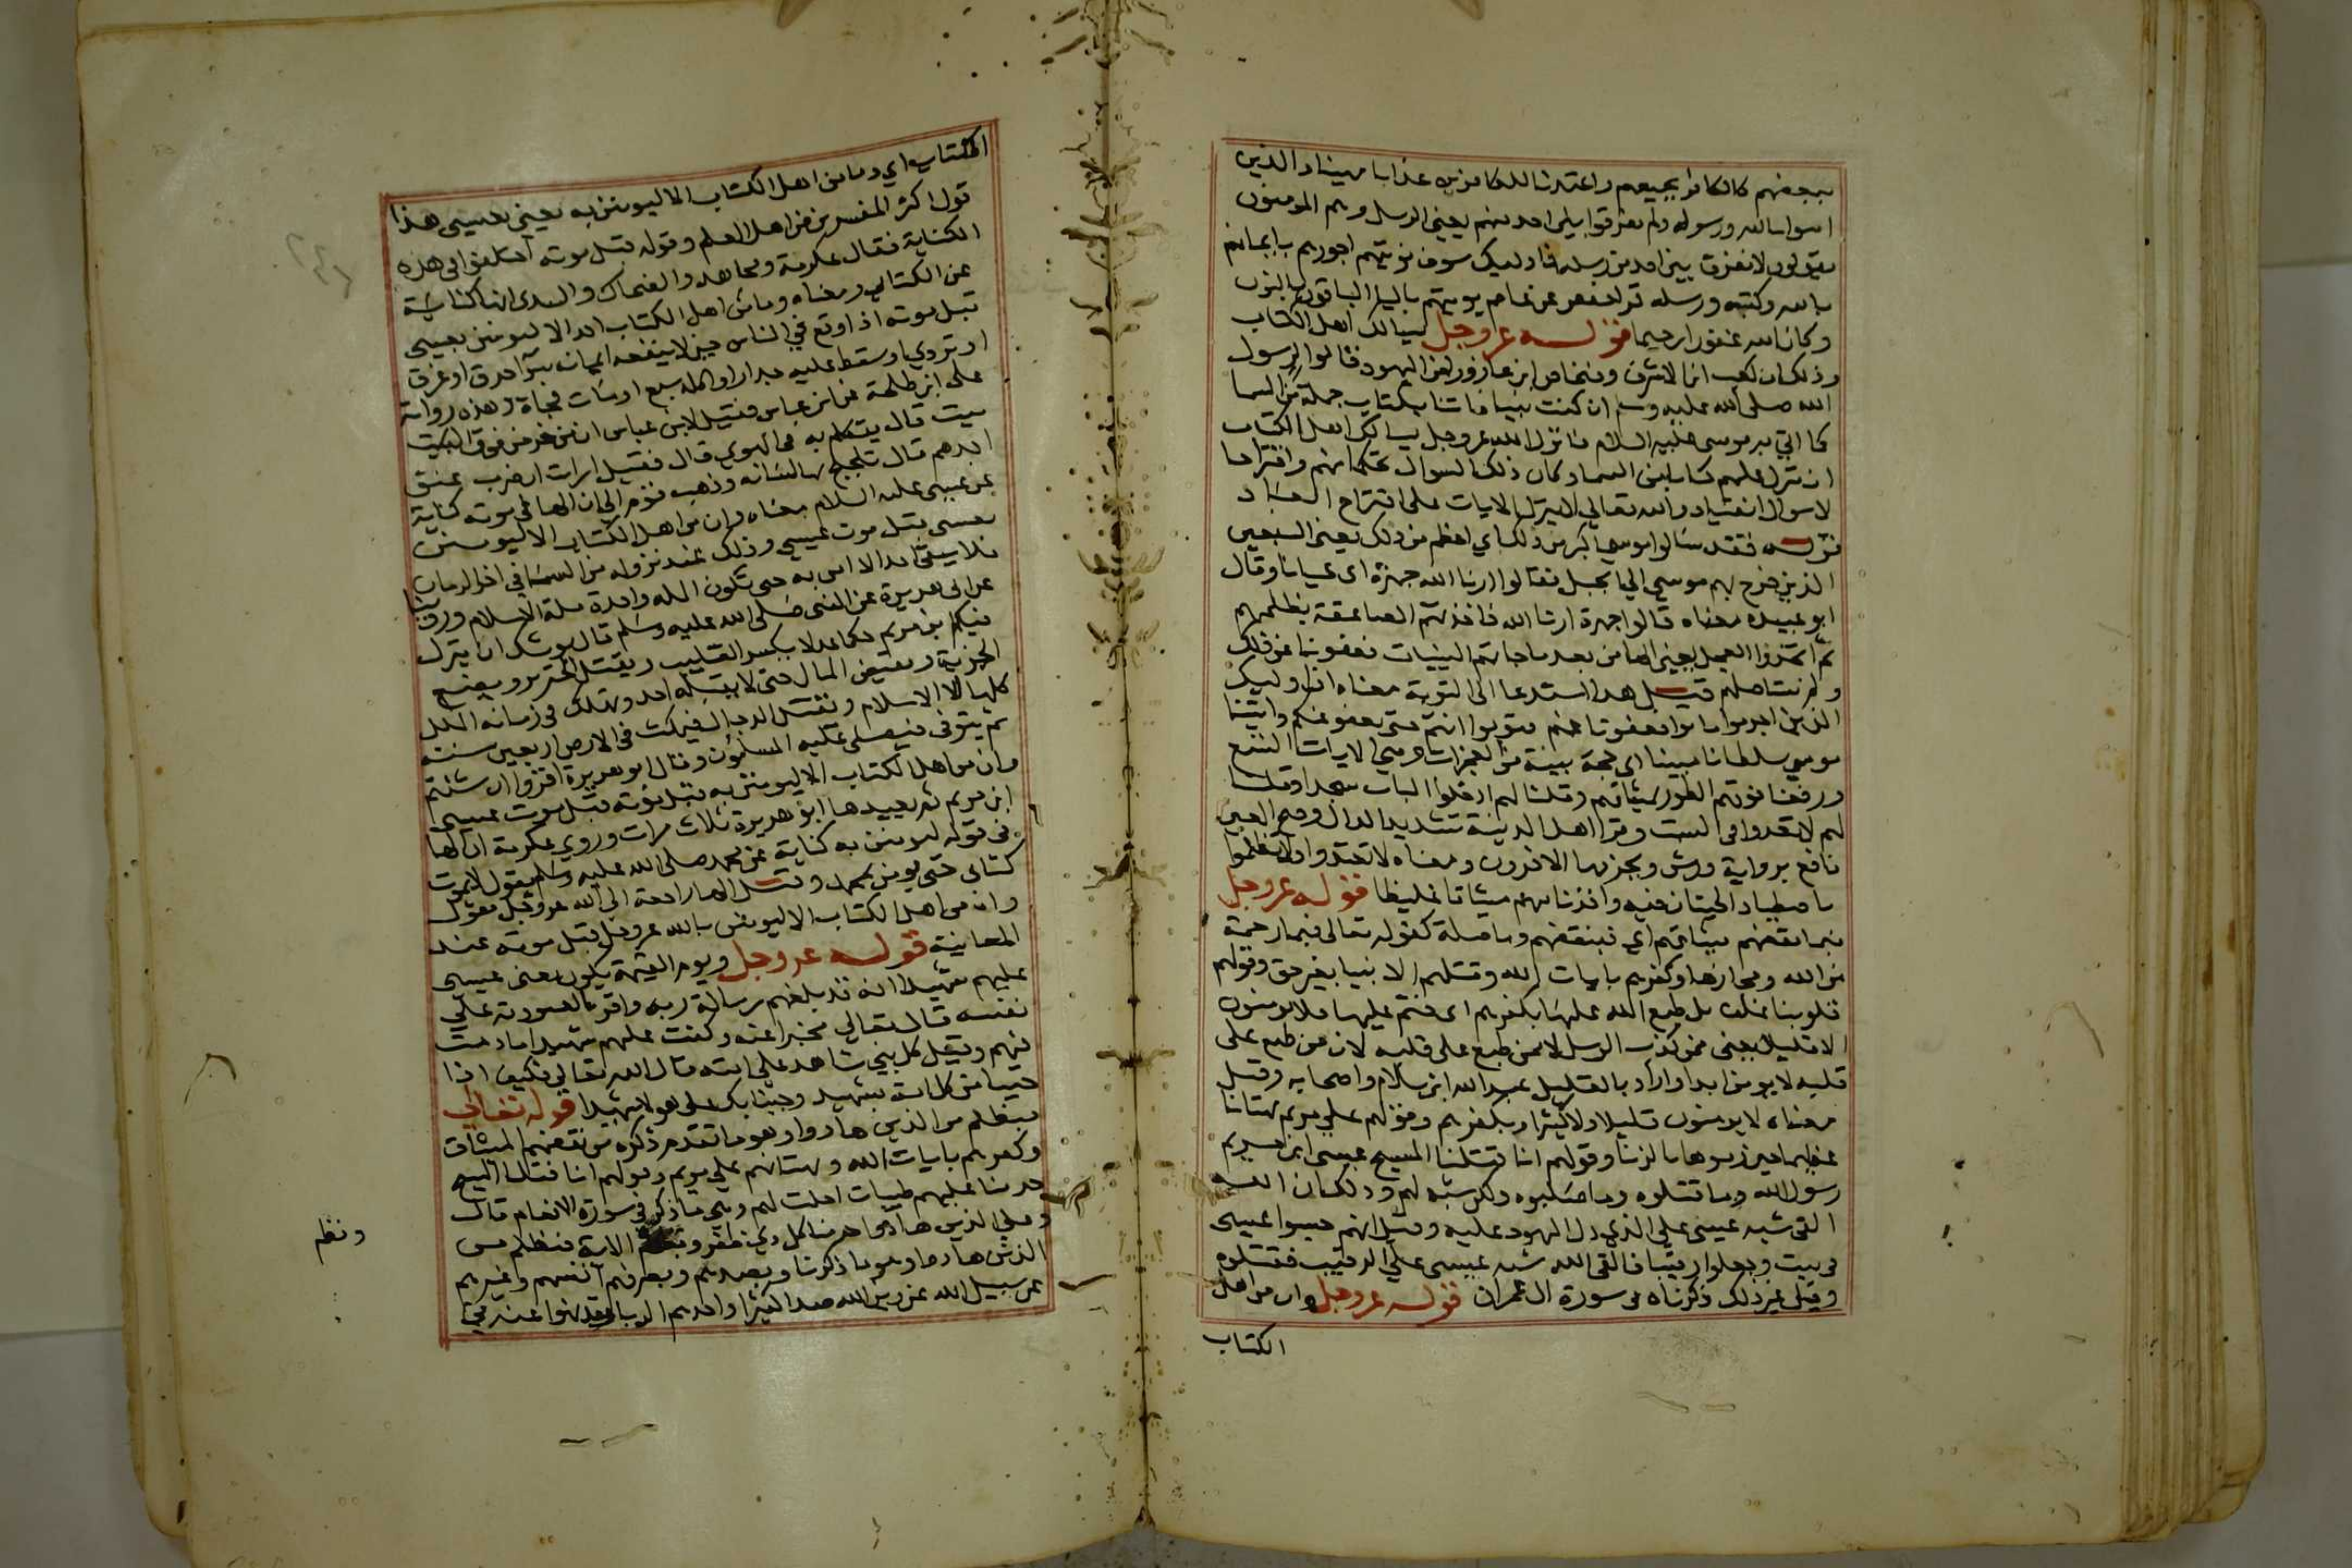 ببعضهم كالكافر بجميعهم واعتدنا للكافرين عذابا مهينا والذين
امنوا بالله ورسوله ولم يفرقوا بين احد منهم يعني الرسل وهم المومنون
يقولون لا نفرق بين احد من رسله فاوليك سوف نوتيهم اجورهم بايمانهم
بالله وكتبه ورسله قرا حفص عن عاصم يوتيهم باليا الباقون بالنون
وكان الله غفورا رحيما قوله عز وجل يسالك اهل الكتاب
وذلك ان كعب ابن الاشرف وفنحاص ابن عازورا من اليهود قالوا لرسول
الله صلى الله عليه وسلم ان كنت نبيا فاتنا بكتاب جملة من السما
كما اتي به موسى عليه السلام فانزل الله عز وجل يسالك اهل الكتاب
ان تنزل عليهم كتابا من السما وكان ذلك السوال تحكما منهم واقتراحا
لا سوال انقياد والله تعالي لا ينزل الايات على اقتراح العباد
قوله فقد سالوا موسى اكبر من ذلك اي اعظم من ذلك يعني السبعين
الذين خرج بهم موسى الي الجبل فقالوا ارنا الله جهرة اي عيانا وقال
ابو عبيده معناه قالوا جهرة ارنا الله فاخذتهم الصاعقة بظلمهم
ثم اتخذوا العجل يعني الها من بعد ما جاتهم البينات فعفونا عن ذلك
ولم نستاصلهم قيل هذا استدعا الى التوبة معناه ان اوليك
الذين اجرموا تابوا فعفونا عنهم فتوبوا انتم حتى يعفو عنكم واتينا
موسى سلطانا مبينا اي حجة بينة من المعجزات وهي الايات التسع
ورفعنا فوقهم الطور بميثاقهم وقلنا لهم ادخلوا الباب سجدا وقلنا
لهم لا تعدوا في السبت وقرا اهل المدينة بتشديد الدال وفتح العين
نافع برواية ورش ويجزمها الاخرون ومعناه لا تعتدوا ولا تظلموا
باصطياد الحيتان فيه واخذنا منهم ميثاقا غليظا قوله عز وجل
فبما نقضهم ميثاقهم اي فبنقضهم وما صلة كقوله تعالى فبما رحمة
من الله ومجازها وكفرهم بايات الله وقتلهم الانبيا بغير حق وقولهم
قلوبنا غلف بل طبع الله عليها بكفرهم اي ختم عليها فلا يومنون
الا قليلا يعني ممن كذب الرسل لا ممن طبع على قلبه لان من طبع على
قلبه لا يومن ابدا واراد بالقليل عبد الله ابن سلام واصحابه وقيل
معناه لا يومنون قليلا ولا كثيرا وبكفرهم وقولهم علي مريم بهتانا
عظيما حين رموها بالزنا وقولهم انا قتلنا المسيح عيسى ابن مريم
رسول الله وما قتلوه وما صلبوه ولكن شبه لهم وذلك ان الله
القى شبه عيسى علي الذي دل اليهود عليه وقيل انهم حبسوا عيسى
في بيت وجعلوا رقيبا فالقى الله شبه عيسى علي الرقيب فقتلوه
وقيل غير ذلك ذكرناه في سورة ال عمران قوله عز وجل وان من اهل
الكتاب
الكتاب اي وما من اهل الكتاب الا ليومنن به يعني بعيسى هذا
قول اكثر المفسرين من اهل العلم وقوله قبل موته اختلفوا في هذه
الكناية فقال عكرمة ومجاهد والضحاك والسدى انها كناية
عن الكتابي ومعناه وما من اهل الكتاب احد الا ليومنن بعيسى
قبل موته اذا وقع في الناس حين لا ينفعه ايمانه سوآ احترق او غرق
او تردي او سقط عليه جدار او اكله سبع او مات فجاة وهذه رواية
على ابن طلحة عن ابن عباس فقيل لابن عباس ان من خر من فوق البيت
ميت قال يتكلم به في الهوي قال فقيل ارايت ان ضرب عنق
احدهم قال تلجلج بها لسانه وذهب قوم الى ان الها في موته كناية
عن عيسى عليه السلام معناه وان من اهل الكتاب الا ليومنن
بعيسى قبل موت عيسى وذلك عند نزوله من السما في اخر الزمان
فلا يبقى احد الا امن به حتى تكون المله واحدة ملة الاسلام وروينا
عن ابي هريرة عن النبي صلى الله عليه وسلم قال يوشك ان ينزل
فيكم ابن مريم حكما عدلا يكسر الصليب ويقتل الخنزير ويضع
الجزية ويفيض المال حتى لا يقبله احد ويهلك في زمانه الملل
كلها الا الاسلام ويقتل الدجال فيمكث في الارض اربعين سنة
ثم يتوفى فيصلى عليه المسلمون وقال ابو هريرة اقروا ان شئتم
وان من اهل الكتاب الا ليومنن به قبل موته قبل موت عيسى
ابن مريم ثم يعيدها ابو هريرة ثلاث مرات وروي عكرمة ان الها
في قوله ليومنن به كناية عن محمد صلى الله عليه وسلم يقول لا يموت
كتابي حتى يومن بمحمد وقيل الها راجعة الى الله عز وجل يقول
وان من اهل الكتاب الا ليومنن بالله عز وجل قبل موته عند
المعاينة قوله عز وجل ويوم القيمة يكون يعني عيسى
عليهم شهيدا انه قد بلغهم رسالة ربه واقر بالعبودية علي
نفسه قال تعالي مخبرا عنه وكنت عليهم شهيدا ما دمت
فيهم وقيل كل نبي شاهد على امته قال الله تعالي فكيف اذا
جينا من كل امة بشهيد وجينا بك على هولا شهيدا قوله تعالي
فبظلم من الذين هادوا وهو ما تقدم ذكره من نقضهم الميثاق
وكفرهم بايات الله وبهتانهم علي مريم وقولهم انا قتلنا المسيح
حرمنا عليهم طيبات احلت لهم وهي ما ذكر في سورة الانعام قال
وعلى الذين هادوا حرمنا كل ذي ظفر الاية فنظلم من
الذين هادوا وهو ما ذكرنا وبصدهم وبصرفهم انفسهم وغيرهم
عن سبيل الله عن دين الله صدا كثيرا واخذهم الربا وقد نهوا عنه في
ونظم